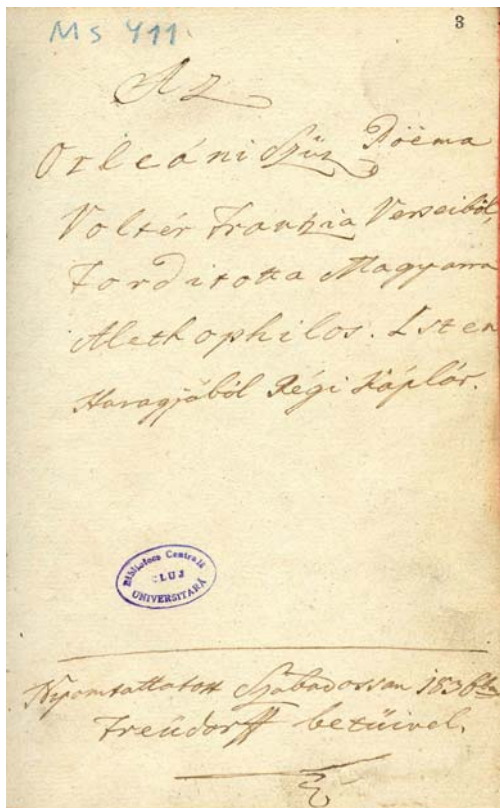 Ms 411.
3
Az
Orleáni Szűz Poëma
Voltér Frantzia Verseiből,
Forditotta Magyarra
Alethophilos. Isten
Haragjából Régi Káplár.
Biblioteca Centrală
CLUJ
UNIVERSITARĂ
Nyomtattatott Szabadossan 1836
Freüdorff betűivel.